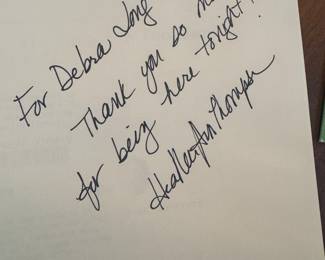 For Debra Long
Thank you so
for being here tonight!
Heather Ann Thompson